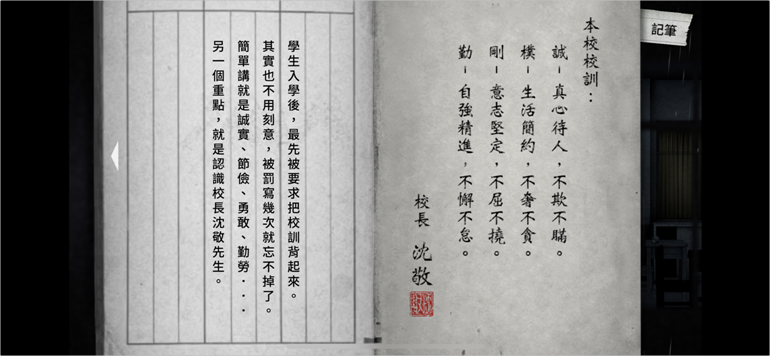 記筆
本校校訓：
誠－真心待人，不欺不瞞。
樸－生活簡約，不奢不貪。
剛－意志堅定，不屈不撓。
勤－自強精進，不懈不怠。
校長 沈敬
學生入學後，最先被要求把校訓背起來。
其實也不用刻意，被罰寫幾次就忘不掉了。
簡單講就是誠實、節儉、勇敢、勤勞．．．
另一個重點，就是認識校長沈敬先生。